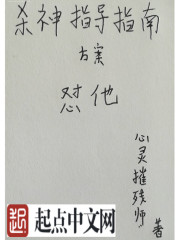 杀神指导指南
方案
怼他
心灵摧残师
著
起
起点中文网